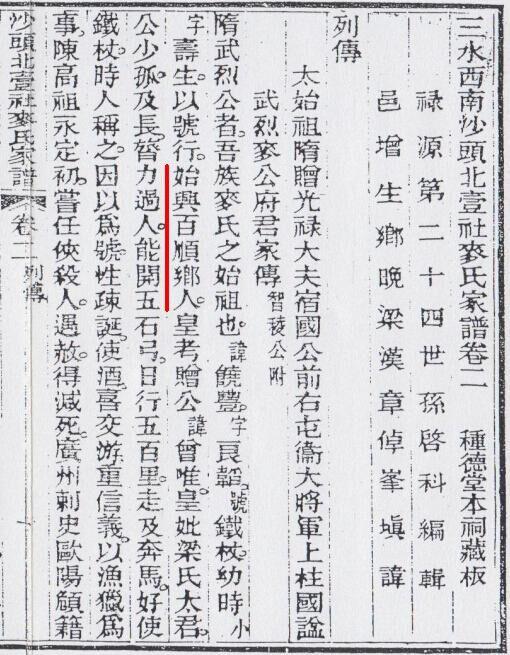 三水西南沙頭北壹社麥氏家譜卷二　種德堂本祠藏板
祿源第二十四世孫啓科編輯
邑增生鄉晚梁漢章倬峯塡諱
列傳
太始祖隋贈光祿大夫宿國公前右屯衞大將軍上柱國諡
武烈麥公府君家傳 智稜公附
隋武烈公者。吾族麥氏之始祖也。諱饒豐。字良韜。號鐵杖。幼時小
字壽生。以號行。始興百順鄉人。皇考贈公諱曾唯。皇妣梁氏太君。
公少孤。及長膂力過人。能開五石弓。日行五百里。走及奔馬。好使
鐵杖。時人稱之。因以爲號。性疎誕。使酒。喜交游。重信義。以漁獵爲
事。陳高祖永定初。嘗任俠殺人。遇赦。得減死。廣州刺史歐陽頠籍
沙頭北壹社麥氏家譜　卷二　列傳